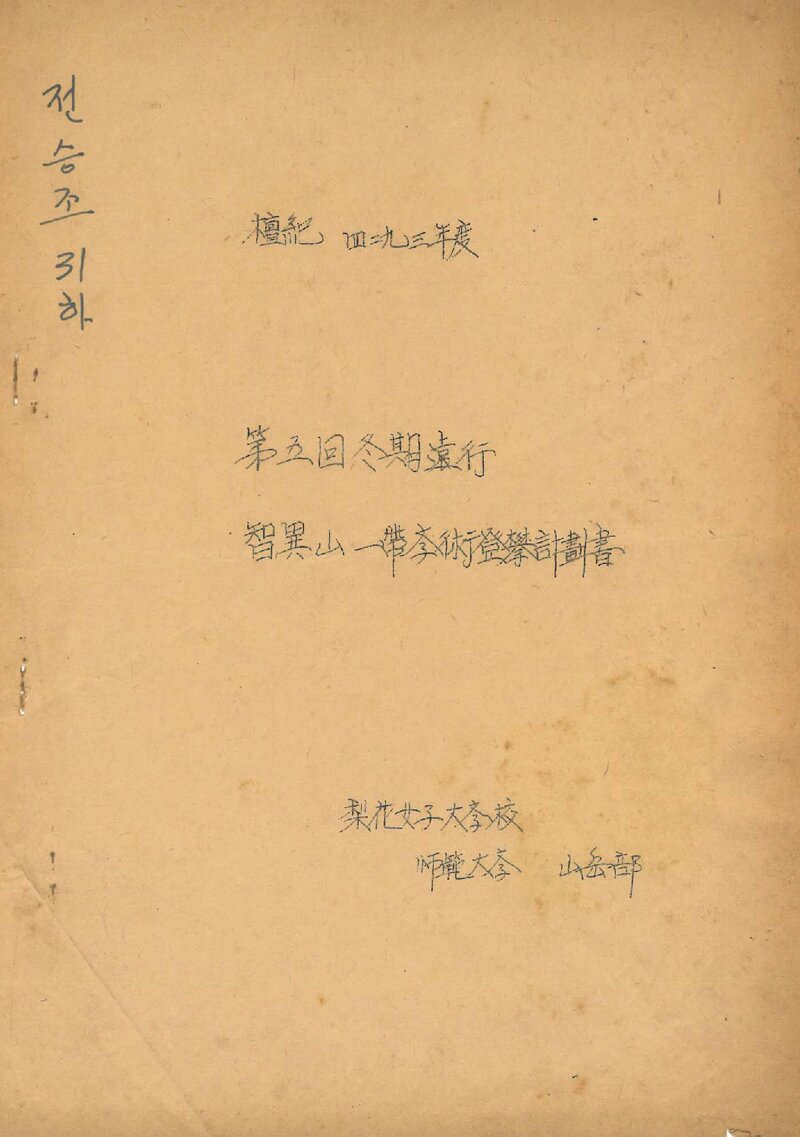 전승조 귀하
檀紀 四二九三年度
第五回冬期遠行
智異山一帶学術登攀計劃書
梨花女子大学校
师範大学 山岳部